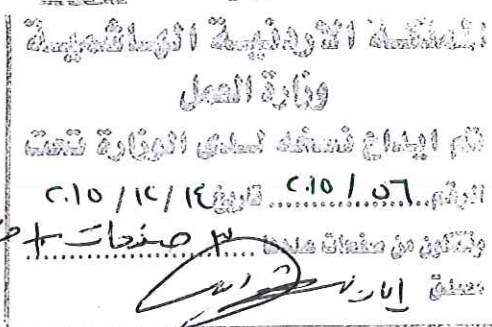 المملكة الاردنية الهاشمية
وزارة العمل
تم ايداع نسخه لدى الوزارة تحت
الرقم ٥٦ / ٢٠١٥ تاريخ ١٤ / ١٢ / ٢٠١٥
وتتكون من صفحات عددها ٣ صفحات +
ملحق